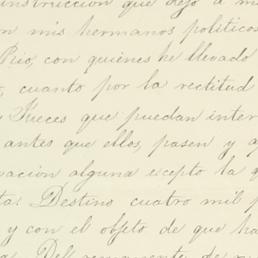 instruccion que dejo a m
n mis hermanos politicos
Rio, con quienes he llevado
, cuanto por la rectitud
y Jueces que puedan inter
antes que ellos, pasen y a
nacion alguna escepto la q
ta: Destino cuatro mil p
y con el objeto de que ha